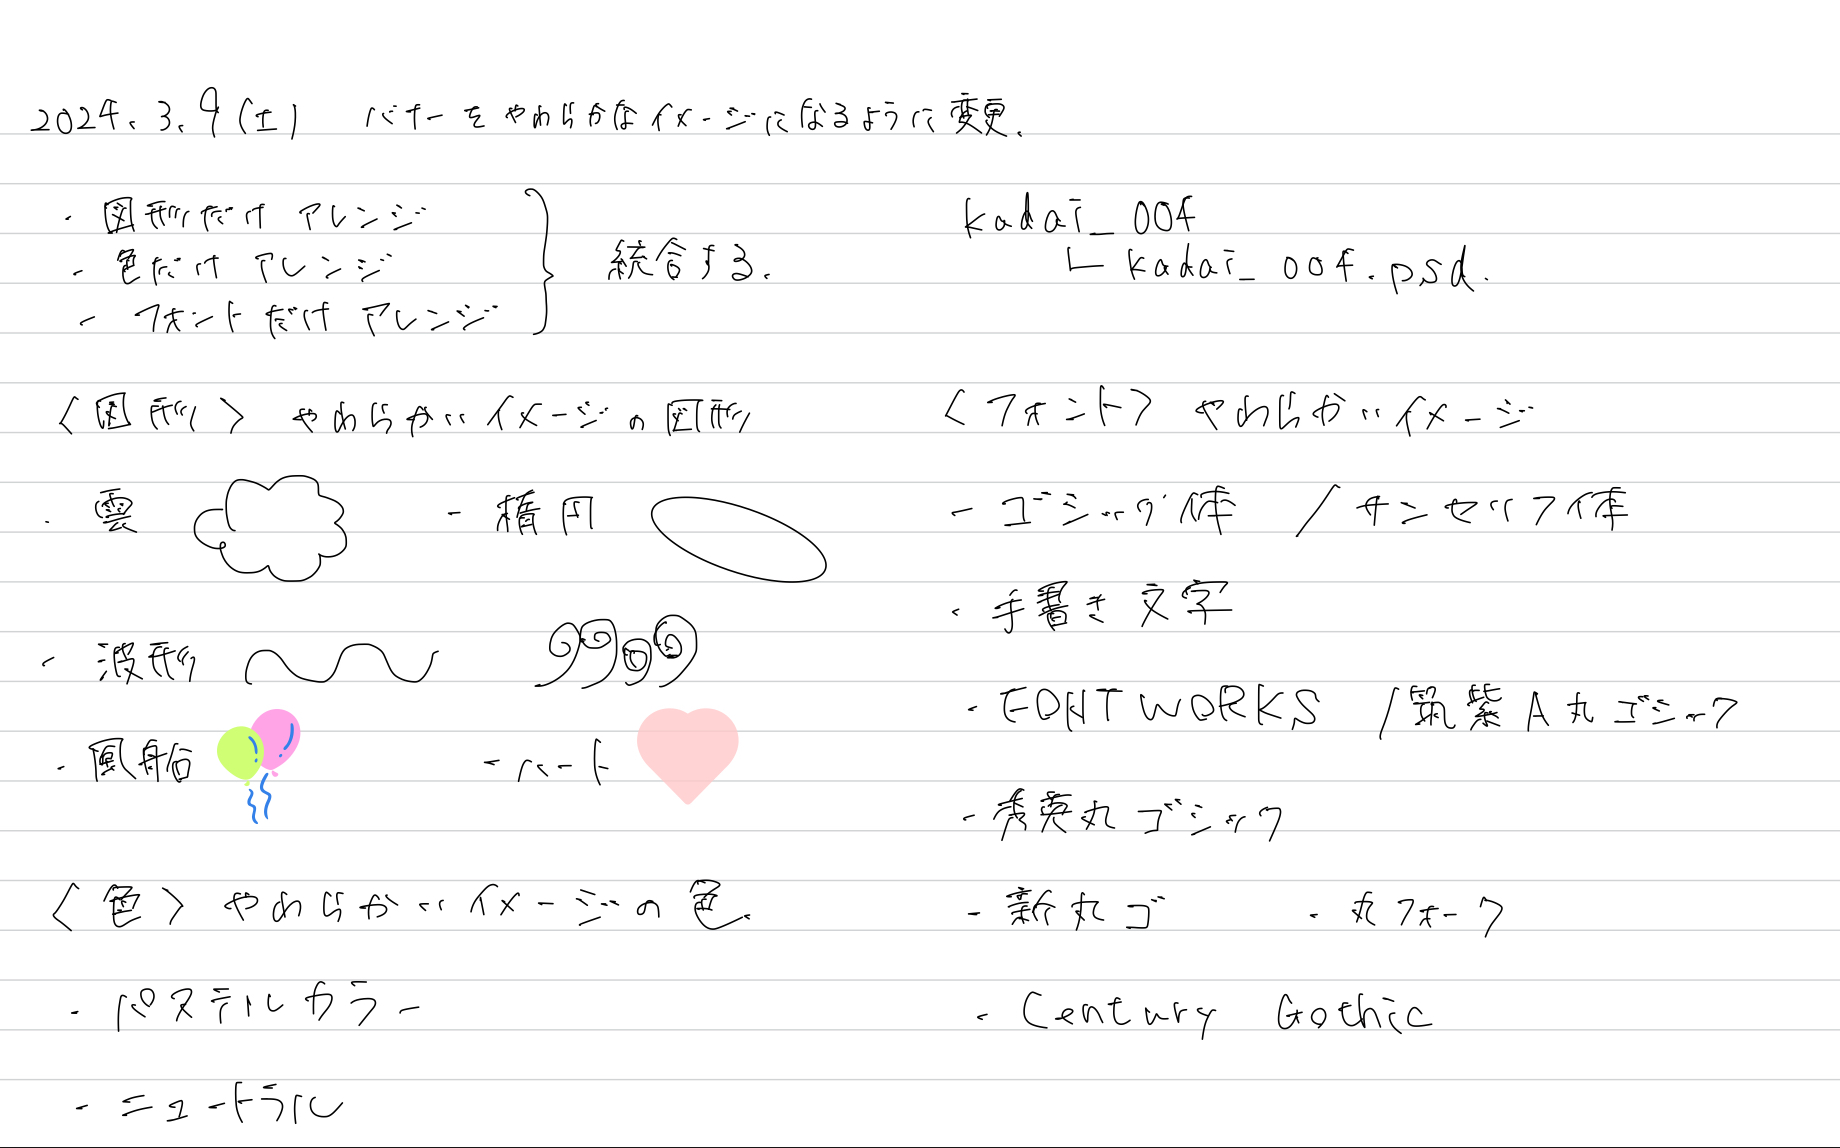 2024.3.9(土) バナーをやわらかなイメージになるように変更.
・図形だけアレンジ
・色だけアレンジ
・フォントだけアレンジ
統合する.
kadai_004
└ kadai_004.psd.
〈図形〉やわらかいイメージの図形
・雲 ・楕円
・波形
・風船 ・ハート
〈色〉やわらかいイメージの色.
・パステルカラー
・ニュートラル
〈フォント〉やわらかいイメージ
・ゴシック体 / サンセリフ体
・手書き文字
・FONTWORKS / 筑紫A丸ゴシック
・秀英丸ゴシック
・新丸ゴ ・丸フォーク
・Century Gothic